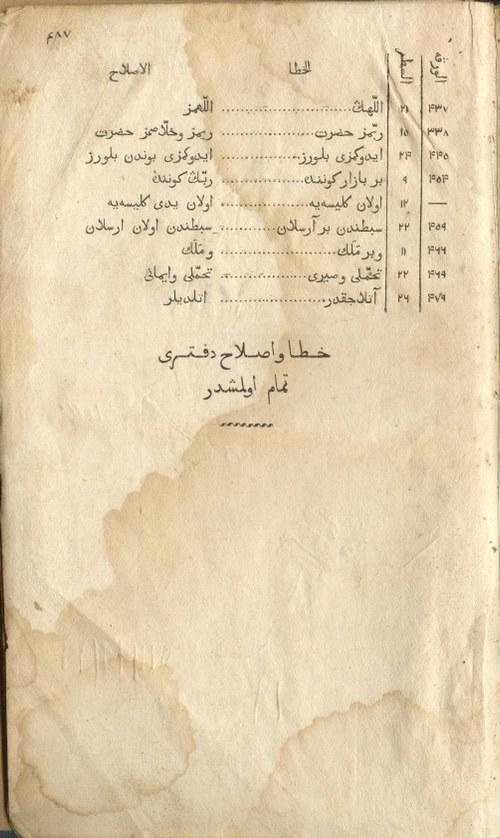 ۴۸۷
الورقه السطر الخطا الاصلاح
۴۳۷ ۲۱ اللّهڭ ........ اللّهمز
۳۳۸ ۱۵ ربّمز حضرت ........ ربمز وخلّاصمز حضرت
۴۴۵ ۲۴ ایدوكڭزی بلورز ........ ایدوكڭزی بوندن بلورز
۴۵۴ ۹ بر بازار كوننده ........ ربّڭ كوننده
— ۱۲ اولان كلیسه‌یه ........ اولان یدی كلیسه‌یه
۴۵۹ ۲۲ سبطندن بر آرسلان ........ سبطندن اولان ارسلان
۴۶۶ ۱۱ وبر مَلَك ........ ومَلَك
۴۶۹ ۲۲ تحمّلی وصبری ........ تحمّلی وایمانی
۴۷۹ ۲۶ آتلاجقدر ........ اتلدیلر
خطا واصلاح دفتری
تمام اولمشدر